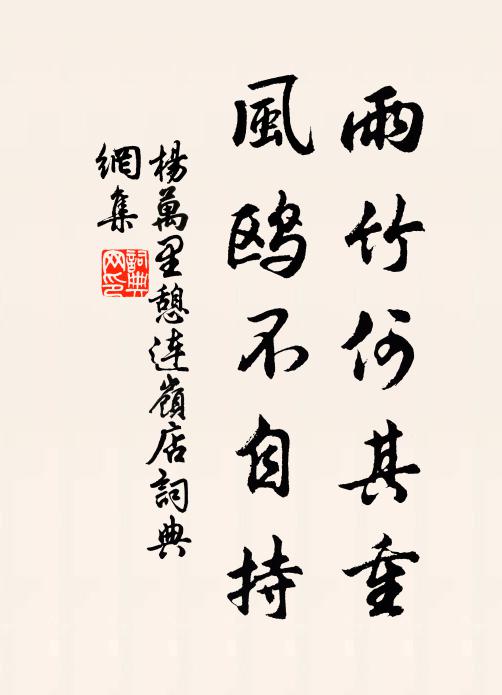 雨竹何其重
風鸥不自持
楊萬里憩連嶺店詞典
網集
詞典
网印